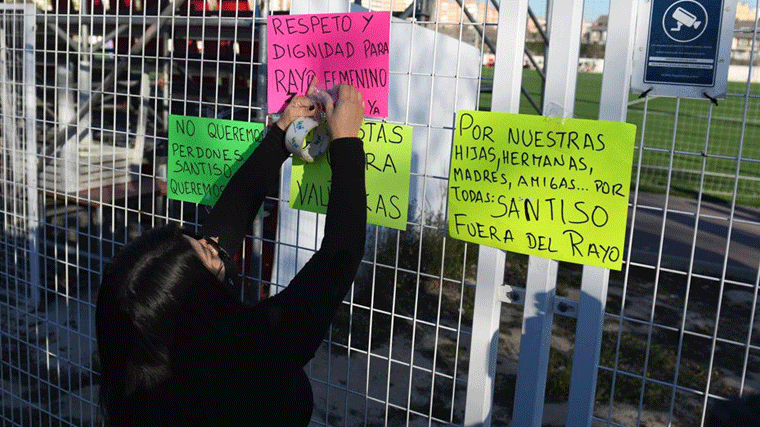 RESPETO Y
DIGNIDAD PARA
RAYO FEMENINO
YA
NO QUEREMOS
PERDONES
SANTISO
QUEREMOS
VAL CAS
POR NUESTRAS
HIJAS, HERMANAS,
MADRES, AMIGAS... POR
TODAS: SANTISO
FUERA DEL RAYO